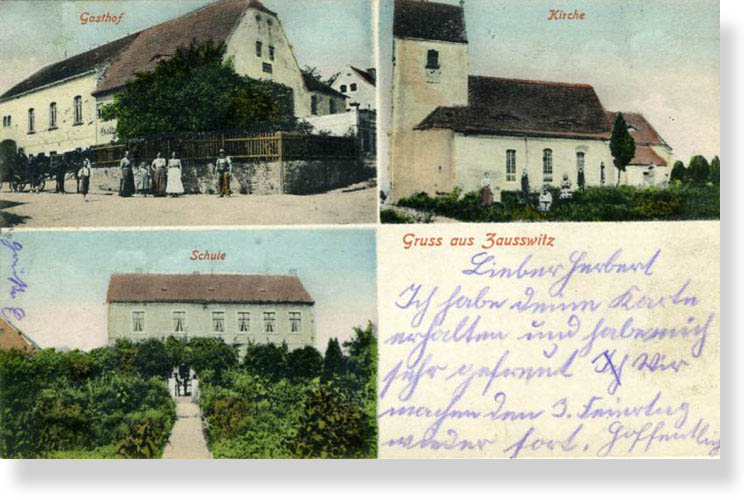 Gasthof
Kirche
Schule
Gruss aus Zausswitz
Lieber Herbert
Ich habe deine Karte
erhalten und habe mich
sehr gefreut Ich Wir
machen den 3. Feiertag
wieder fort. Hoffentlich